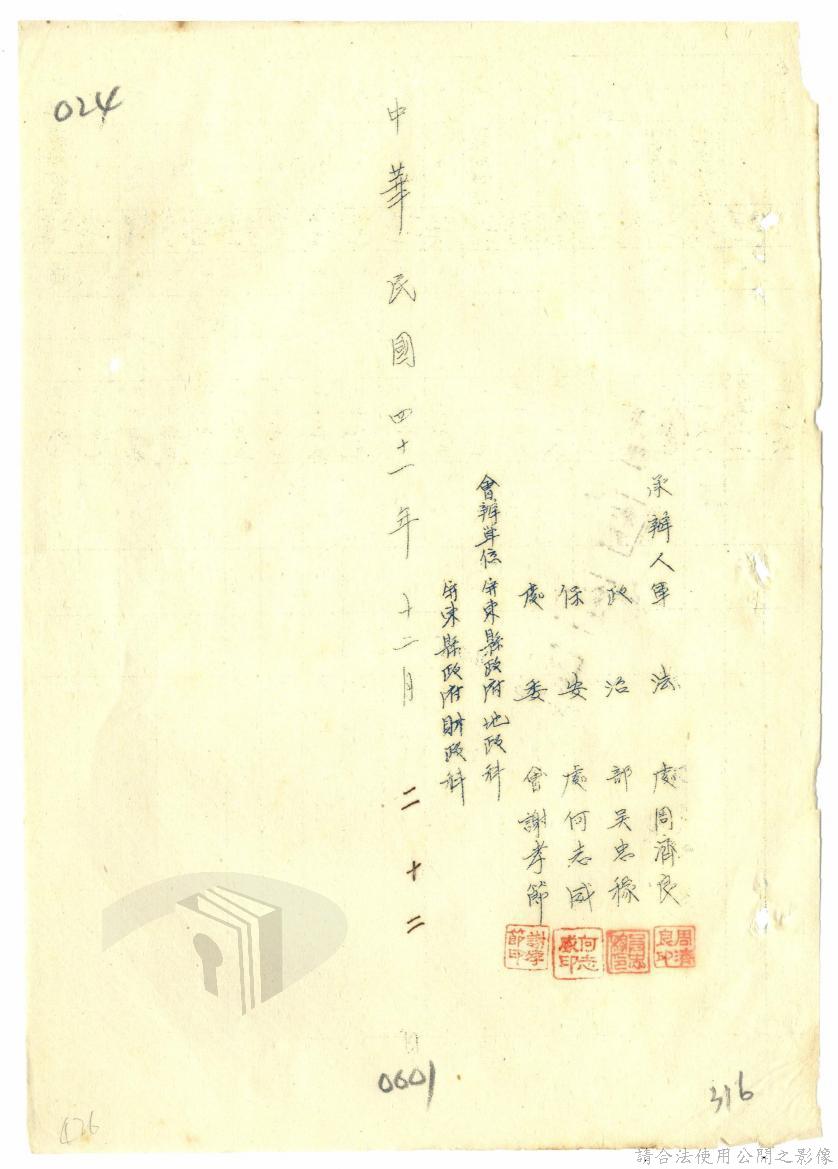 承辦人軍法處周濟良
周濟良印
政治部吳忠稼
保安處何志威
何志威印
處委會謝孝節
謝孝節印
會辦單位屏東縣政府地政科
屏東縣政府財政科
中華民國四十一年十二月二十二日
024
0601
316
426
請合法使用公開之影像